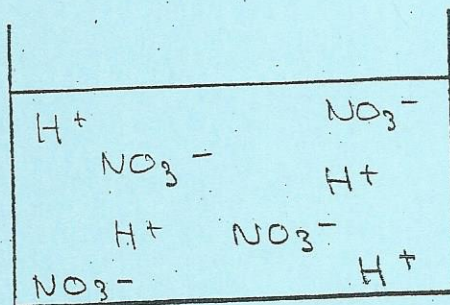 H⁺ NO₃⁻
NO₃⁻ H⁺
H⁺ NO₃⁻
NO₃⁻ H⁺